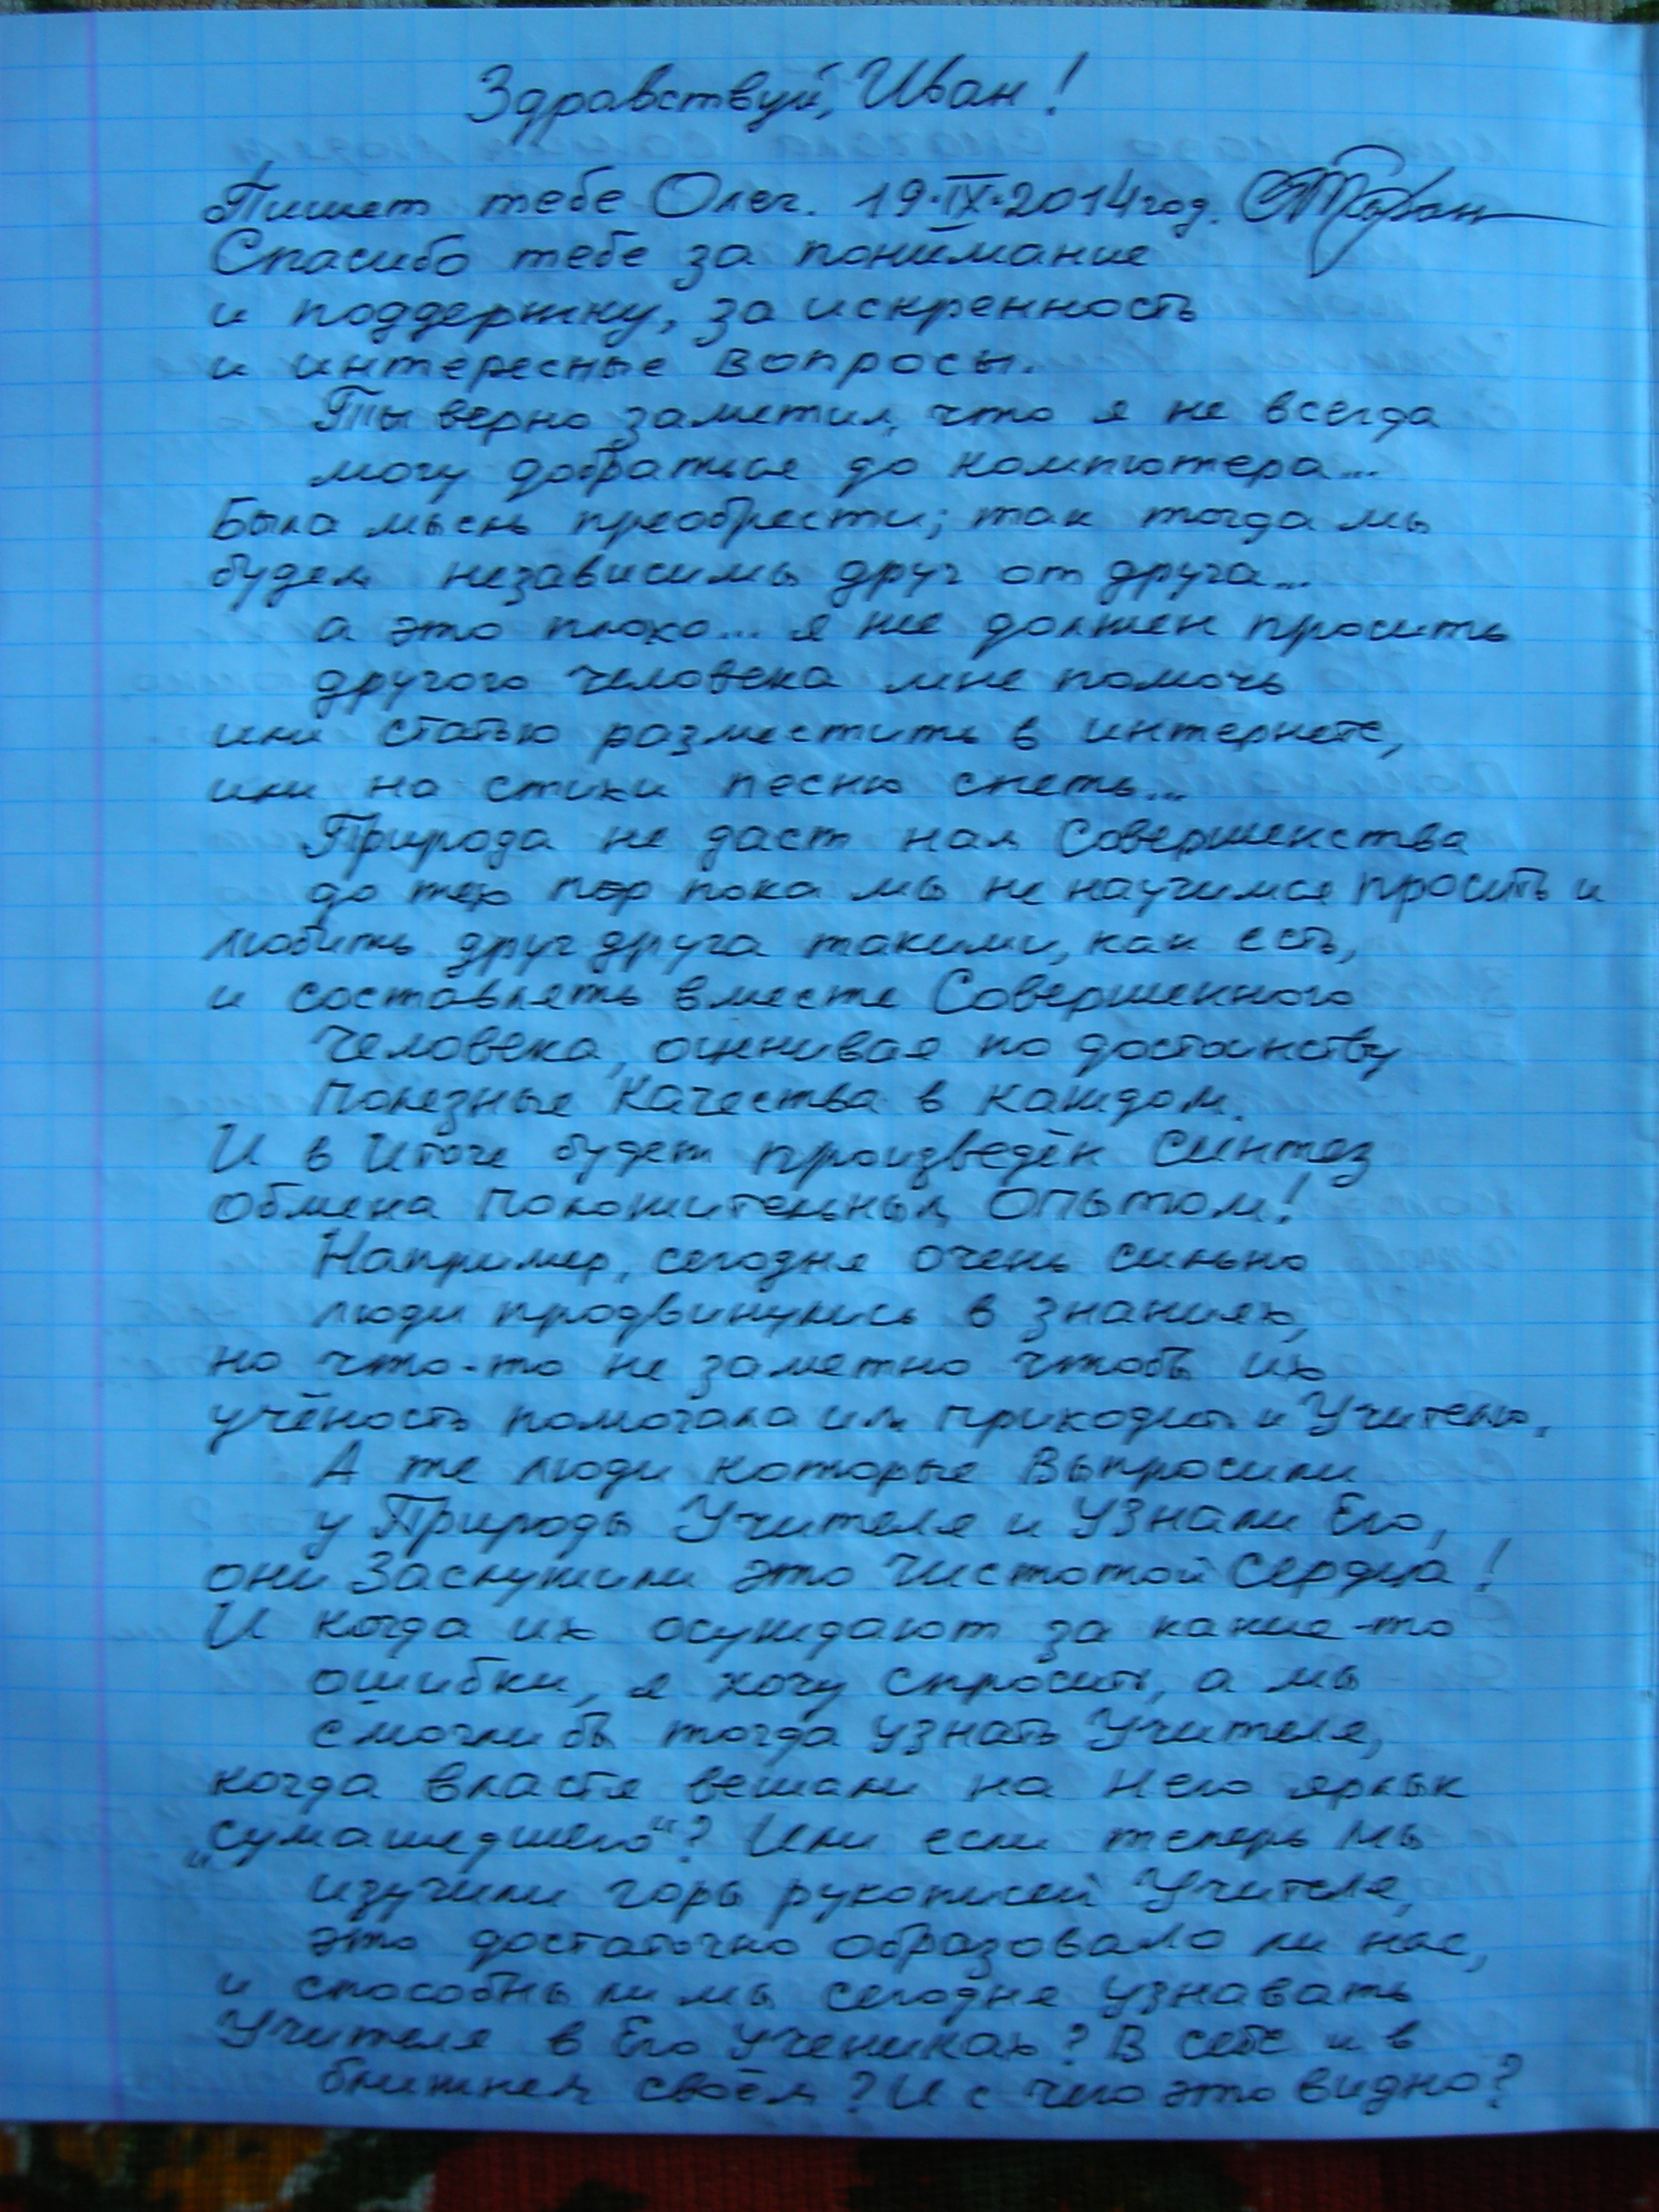 Здравствуй, Иван!
Пишет тебе Олег. 19.IX.2014 год.
Спасибо тебе за понимание
и поддержку, за искренность
и интересные вопросы.
Ты верно заметил, что я не всегда
могу добраться до компютера...
Была мысль преобрести; так тогда мы
будем независимы друг от друга...
а это плохо... я же должен просить
другого человека мне помочь
или статью разместить в интернете,
или на стихи песню спеть...
Природа не даст нам Совершенства
до тех пор пока мы не научимся просить и
любить друг друга такими, как есть,
и составлять вместе Совершенного
Человека, оценивая по достоинству
Полезные Качества в каждом.
И в Итоге будет произведён Синтез
Обмена Положительным ОПЫТОМ!
Например, сегодня очень сильно
люди продвинулись в знаниях,
но что-то не заметно чтобы их
учёность помогала им приходить к Учителю.
А те люди которые Выпросили
у Природы Учителя и УЗнали Его,
они Заслужили это Чистотой Сердца!
И когда их осуждают за какие-то
ошибки, я хочу спросить, а мы
смогли бы тогда узнать Учителя,
когда власти вешали на Него ярлык
„сумашедшего“? Или если теперь мы
изучили горы рукописей Учителя,
это достаточно образовало ли нас,
и способны ли мы сегодня узнавать
Учителя в Его Учениках? В себе и в
ближнем своём? И с чего это видно?